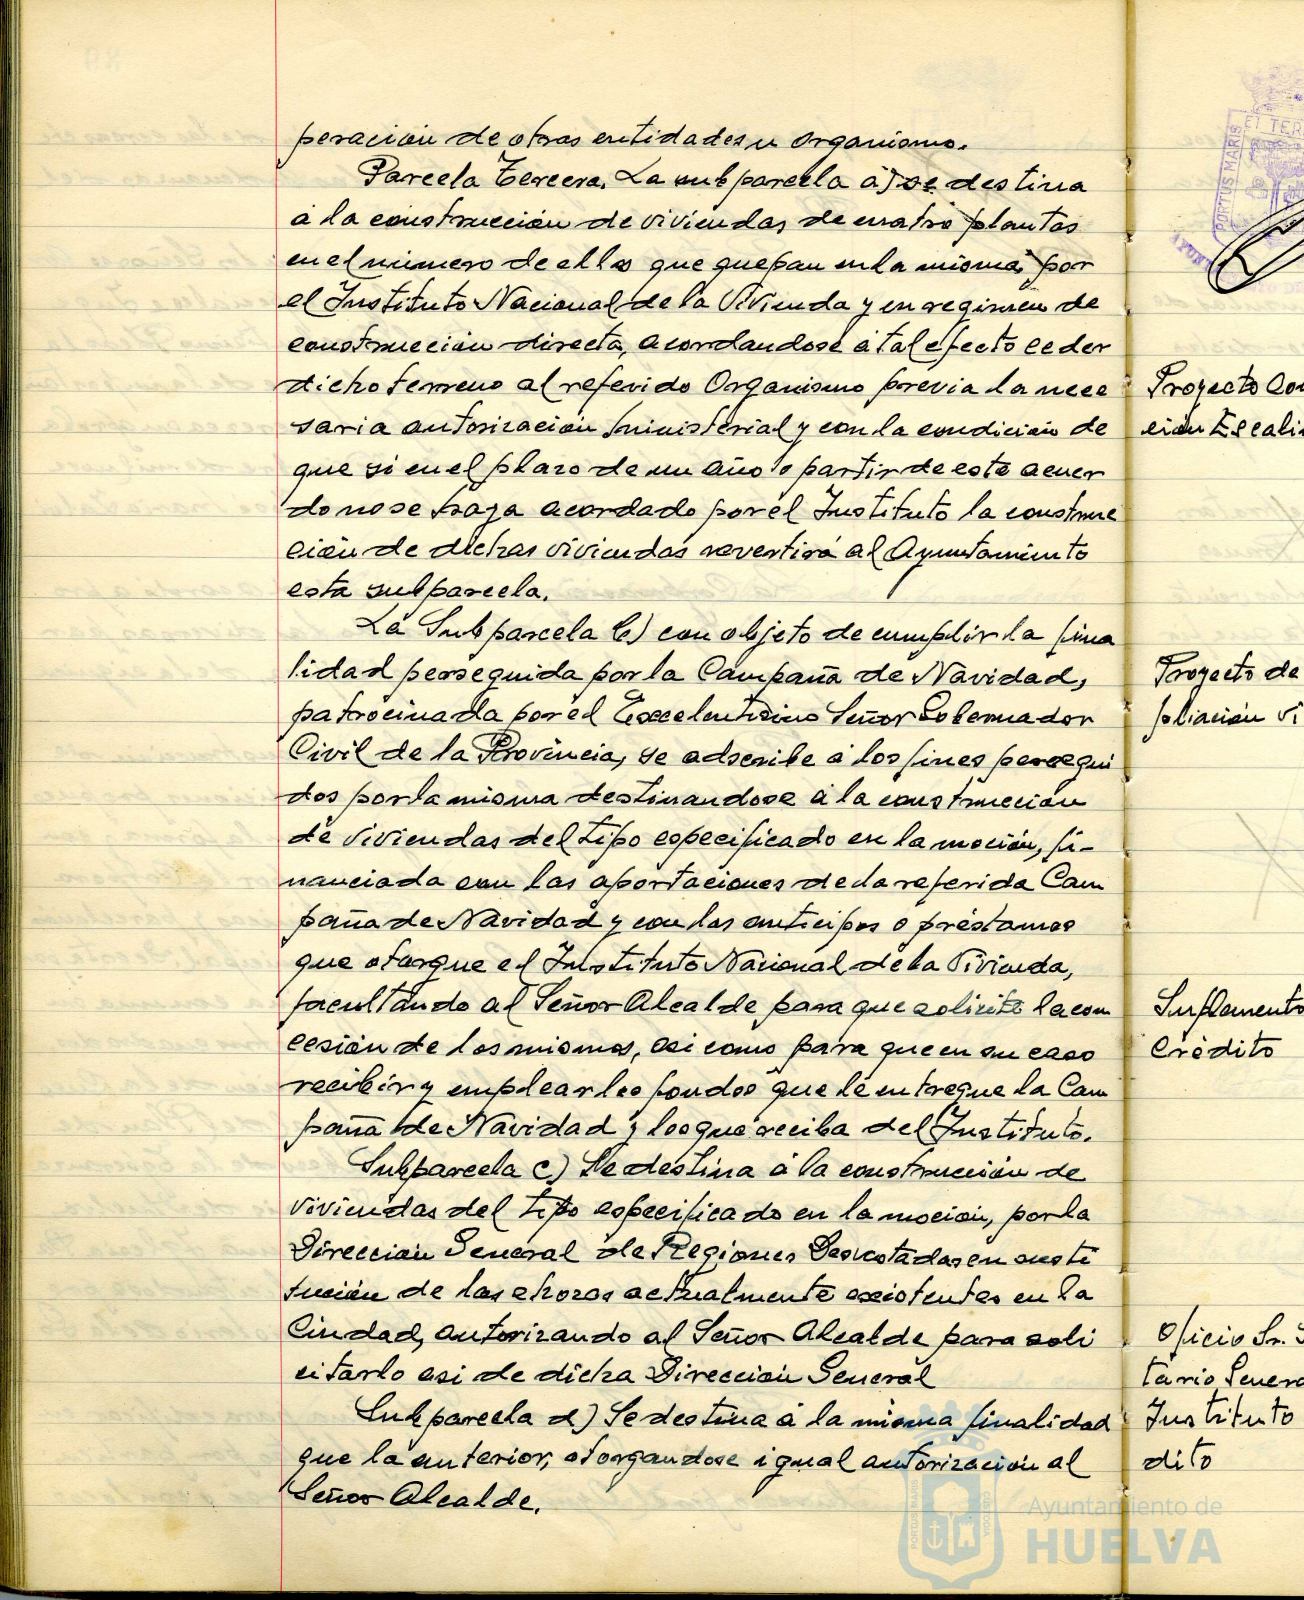 peración de otras entidades u organismo.
Parcela Tercera. La subparcela a) se destina
á la construcción de viviendas de cuatro plantas
en el número de ellas que quepan en la misma, por
el Instituto Nacional de la Vivienda y en regimen de
construcción directa, acordandose á tal efecto ceder
dicho terreno al referido Organismo previa la nece
saria autorización ministerial y con la condición de
que si en el plazo de un año a partir de este acuer
do no se haya acordado por el Instituto la construc
ción de dichas viviendas revertirá al Ayuntamiento
esta subparcela.
La Subparcela b) con objeto de cumplir la fina
lidad perseguida por la Campaña de Navidad,
patrocinada por el Excelentisimo Señor Gobernador
Civil de la Provincia, se adscribe á los fines persegui
dos por la misma destinandose á la construcción
de viviendas del tipo especificado en la moción, fi-
nanciada con las aportaciones de la referida Cam
paña de Navidad y con los anticipos o préstamos
que otorgue el Instituto Nacional de la Vivienda,
facultando al Señor Alcalde para que solicite la con
cesión de los mismos, asi como para que en su caso
recibir y emplear los fondos que le entregue la Cam
paña de Navidad y los que reciba del Instituto.
Subparcela c) Se destina á la construcción de
viviendas del tipo especificado en la moción, por la
Dirección General de Regiones Devastadas en susti
tución de las chozas actualmente existentes en la
Ciudad, autorizando al Señor Alcalde para soli
citarlo asi de dicha Dirección General
Subparcela d) Se destina á la misma finalidad
que la anterior, otorgandose igual autorización al
Señor Alcalde.
Proyecto Con
ción Escali
Proyecto de
pliación vi
Suplemento
Crédito
Oficio Sr. S
tario Genera
Instituto
dito
PORTUS MARIS
ET TER
Ayuntamiento de
HUELVA